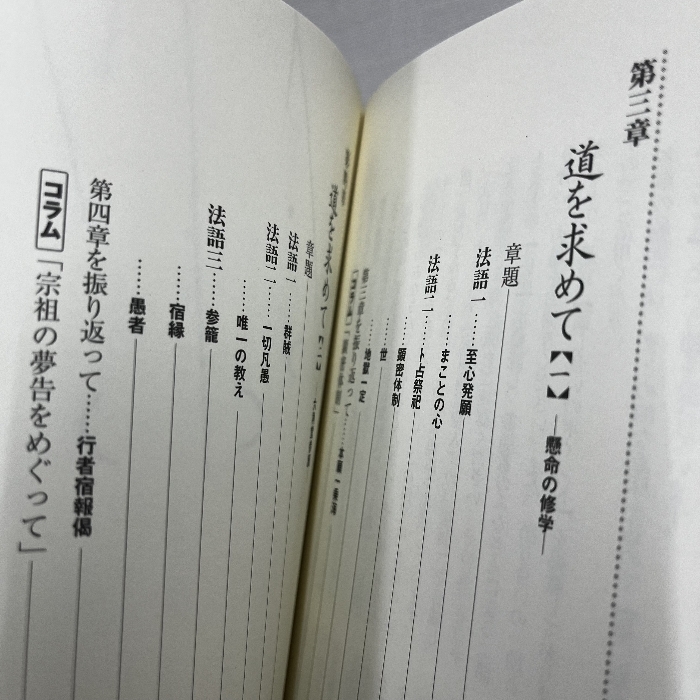 第三章
道を求めて【一】―懸命の修学―
章題
法語一……至心発願
……まことの心
法語二……卜占祭祀
……顕密体制
……世
……地獄一定
第三章を振り返って……本願一乗海
道を求めて【二】
章題
法語一……群賊
法語二……一切凡愚
……唯一の教え
法語三……参籠
……宿縁
……愚者
第四章を振り返って……行者宿報偈
コラム「宗祖の夢告をめぐって」